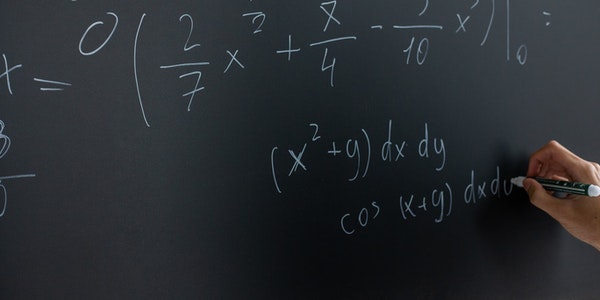 x = 0 ( 2/7 x + /4 - /10 x ) |₀ =
(x² + y) dx dy
cos (x+y) dx dy